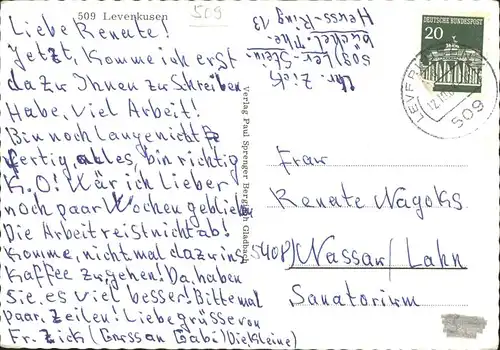 509 Levenkusen
509
Liebe Renate!
Jetzt, Komme ich erst
dazu Ihnen zu Schreiben
Habe, Viel Arbeit!
Bin noch Lange nicht
fertig, alles, bin richtig
K.O! Wär ich Lieber
noch paar Wochen geblieben
Die Arbeit reist nicht ab!
Komme, nicht mal dazu ins
Kaffee zu gehen! Da, haben
Sie, es viel besser! Bitte mal
paar Zeilen! Liebe grüsse von
Fr. Zick (Gabi) Die Kleine)
509 Lev. Stein-
büchel. The.
Heuss-Ring 13
Verlag Paul Sprenger Bergisch Gladbach
DEUTSCHE BUNDESPOST
20
LEVER
509
Frau
Renate Nagoks
Nassau/Lahn
Sanatorium